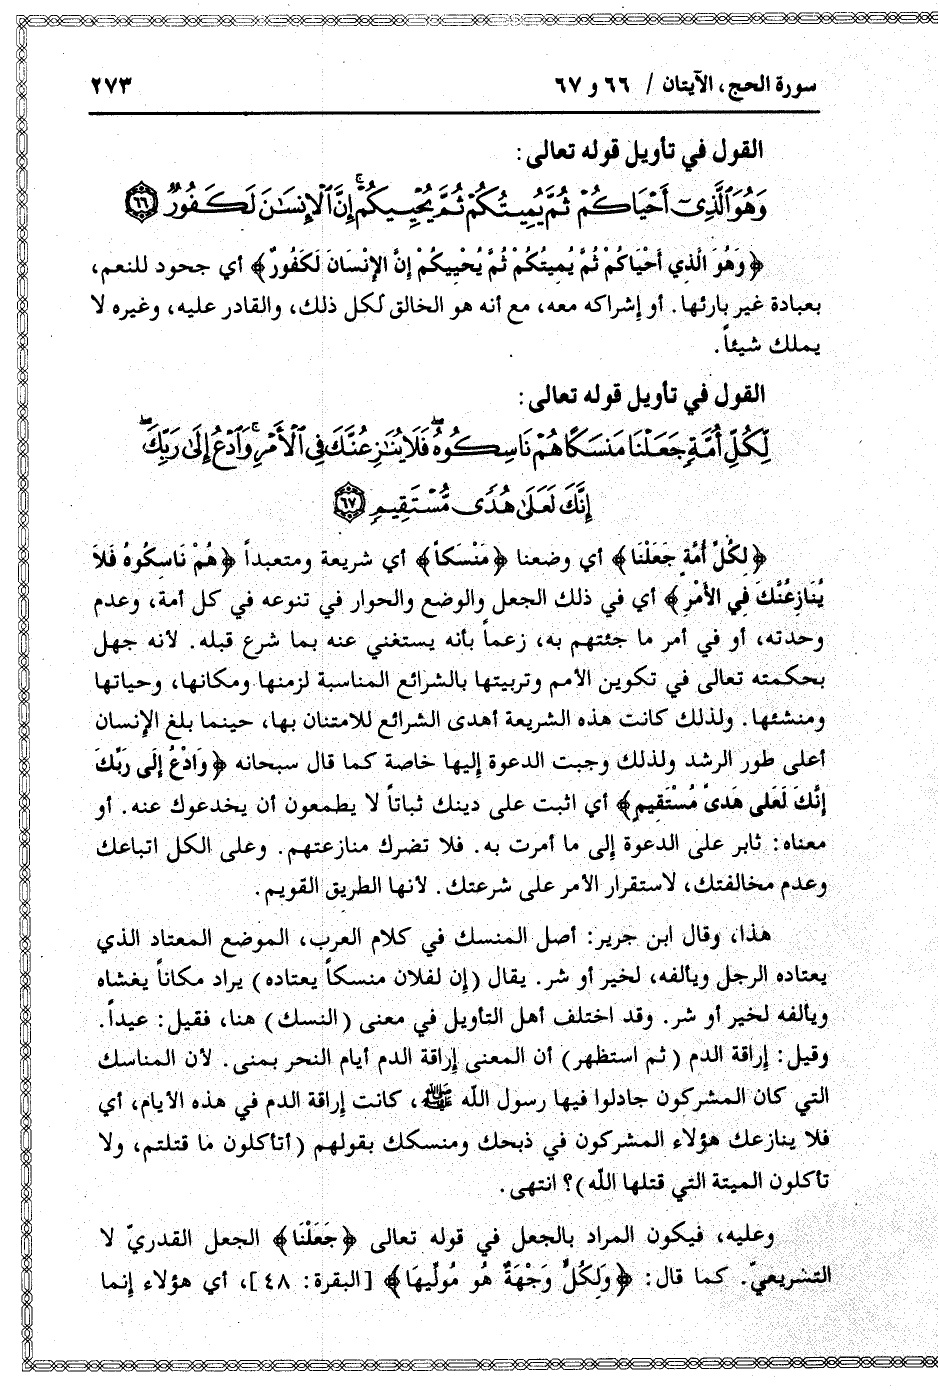 سورة الحج، الآيتان / ٦٦ و ٦٧ ٢٧٣
القول في تأويل قوله تعالى:
وَهُوَ ٱلَّذِىٓ أَحْيَاكُمْ ثُمَّ يُمِيتُكُمْ ثُمَّ يُحْيِيكُمْ ۗ إِنَّ ٱلْإِنسَـٰنَ لَكَفُورٌ ٦٦
﴿وَهُوَ الَّذِي أَحْيَاكُمْ ثُمَّ يُمِيتُكُمْ ثُمَّ يُحْيِيكُمْ إِنَّ الإِنْسَانَ لَكَفُورٌ﴾ أي جحود للنعم،
بعبادة غير بارئها. أو إشراكه معه، مع أنه هو الخالق لكل ذلك، والقادر عليه، وغيره لا
يملك شيئاً.
القول في تأويل قوله تعالى:
لِّكُلِّ أُمَّةٍ جَعَلْنَا مَنسَكًا هُمْ نَاسِكُوهُ ۖ فَلَا يُنَـٰزِعُنَّكَ فِى ٱلْأَمْرِ ۚ وَٱدْعُ إِلَىٰ رَبِّكَ ۖ
إِنَّكَ لَعَلَىٰ هُدًى مُّسْتَقِيمٍ ٦٧
﴿لِكُلِّ أُمَّةٍ جَعَلْنَا﴾ أي وضعنا ﴿مَنْسَكاً﴾ أي شريعة ومتعبداً ﴿هُمْ نَاسِكُوهُ فَلَا
يُنَازِعُنَّكَ فِي الأَمْرِ﴾ أي في ذلك الجعل والوضع والحوار في تنوعه في كل أمة، وعدم
وحدته، أو في أمر ما جئتهم به، زعماً بأنه يستغني عنه بما شرع قبله. لأنه جهل
بحكمته تعالى في تكوين الأمم وتربيتها بالشرائع المناسبة لزمنها ومكانها، وحياتها
ومنشئها. ولذلك كانت هذه الشريعة أهدى الشرائع للامتنان بها، حينما بلغ الإنسان
أعلى طور الرشد ولذلك وجبت الدعوة إليها خاصة كما قال سبحانه ﴿وَادْعُ إِلَى رَبِّكَ
إِنَّكَ لَعَلى هَدىً مُسْتَقِيمٍ﴾ أي اثبت على دينك ثباتاً لا يطمعون أن يخدعوك عنه. أو
معناه: ثابر على الدعوة إلى ما أمرت به. فلا تضرك منازعتهم. وعلى الكل اتباعك
وعدم مخالفتك، لاستقرار الأمر على شرعتك. لأنها الطريق القويم.
هذا، وقال ابن جرير: أصل المنسك في كلام العرب، الموضع المعتاد الذي
يعتاده الرجل ويألفه، لخير أو شر. يقال (إن لفلان منسكاً يعتاده) يراد مكاناً يغشاه
ويألفه لخير أو شر. وقد اختلف أهل التأويل في معنى (النسك) هنا، فقيل: عيداً.
وقيل: إراقة الدم (ثم استظهر) أن المعنى إراقة الدم أيام النحر بمنى. لأن المناسك
التي كان المشركون جادلوا فيها رسول اللّه ﷺ، كانت إراقة الدم في هذه الأيام، أي
فلا ينازعك هؤلاء المشركون في ذبحك ومنسكك بقولهم (أتأكلون ما قتلتم، ولا
تأكلون الميتة التي قتلها اللّه)؟ انتهى.
وعليه، فيكون المراد بالجعل في قوله تعالى ﴿جَعَلْنَا﴾ الجعل القدريّ لا
التشريعيّ. كما قال: ﴿وَلِكُلٍّ وَجْهَةٌ هُوَ مُوَلِّيهَا﴾ [البقرة: ٤٨]، أي هؤلاء إنما